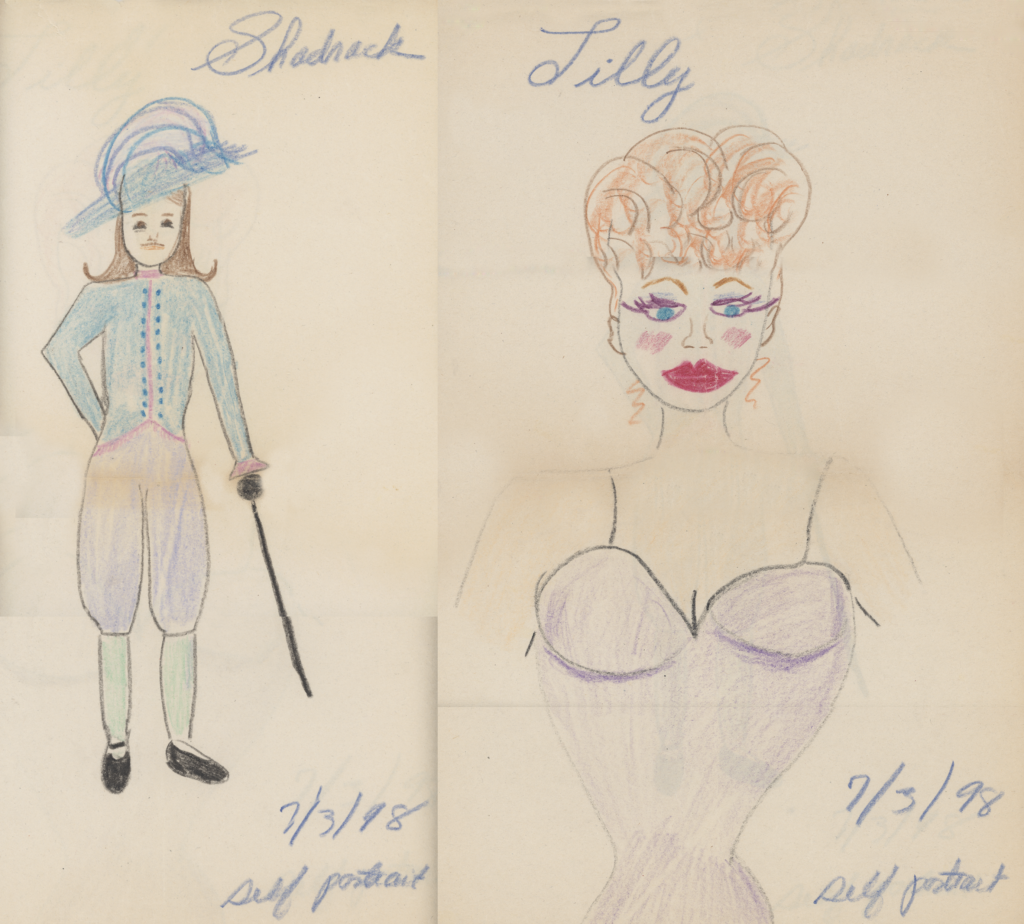 Shadrack
7/3/98
self portrait
Lilly
7/3/98
self portrait